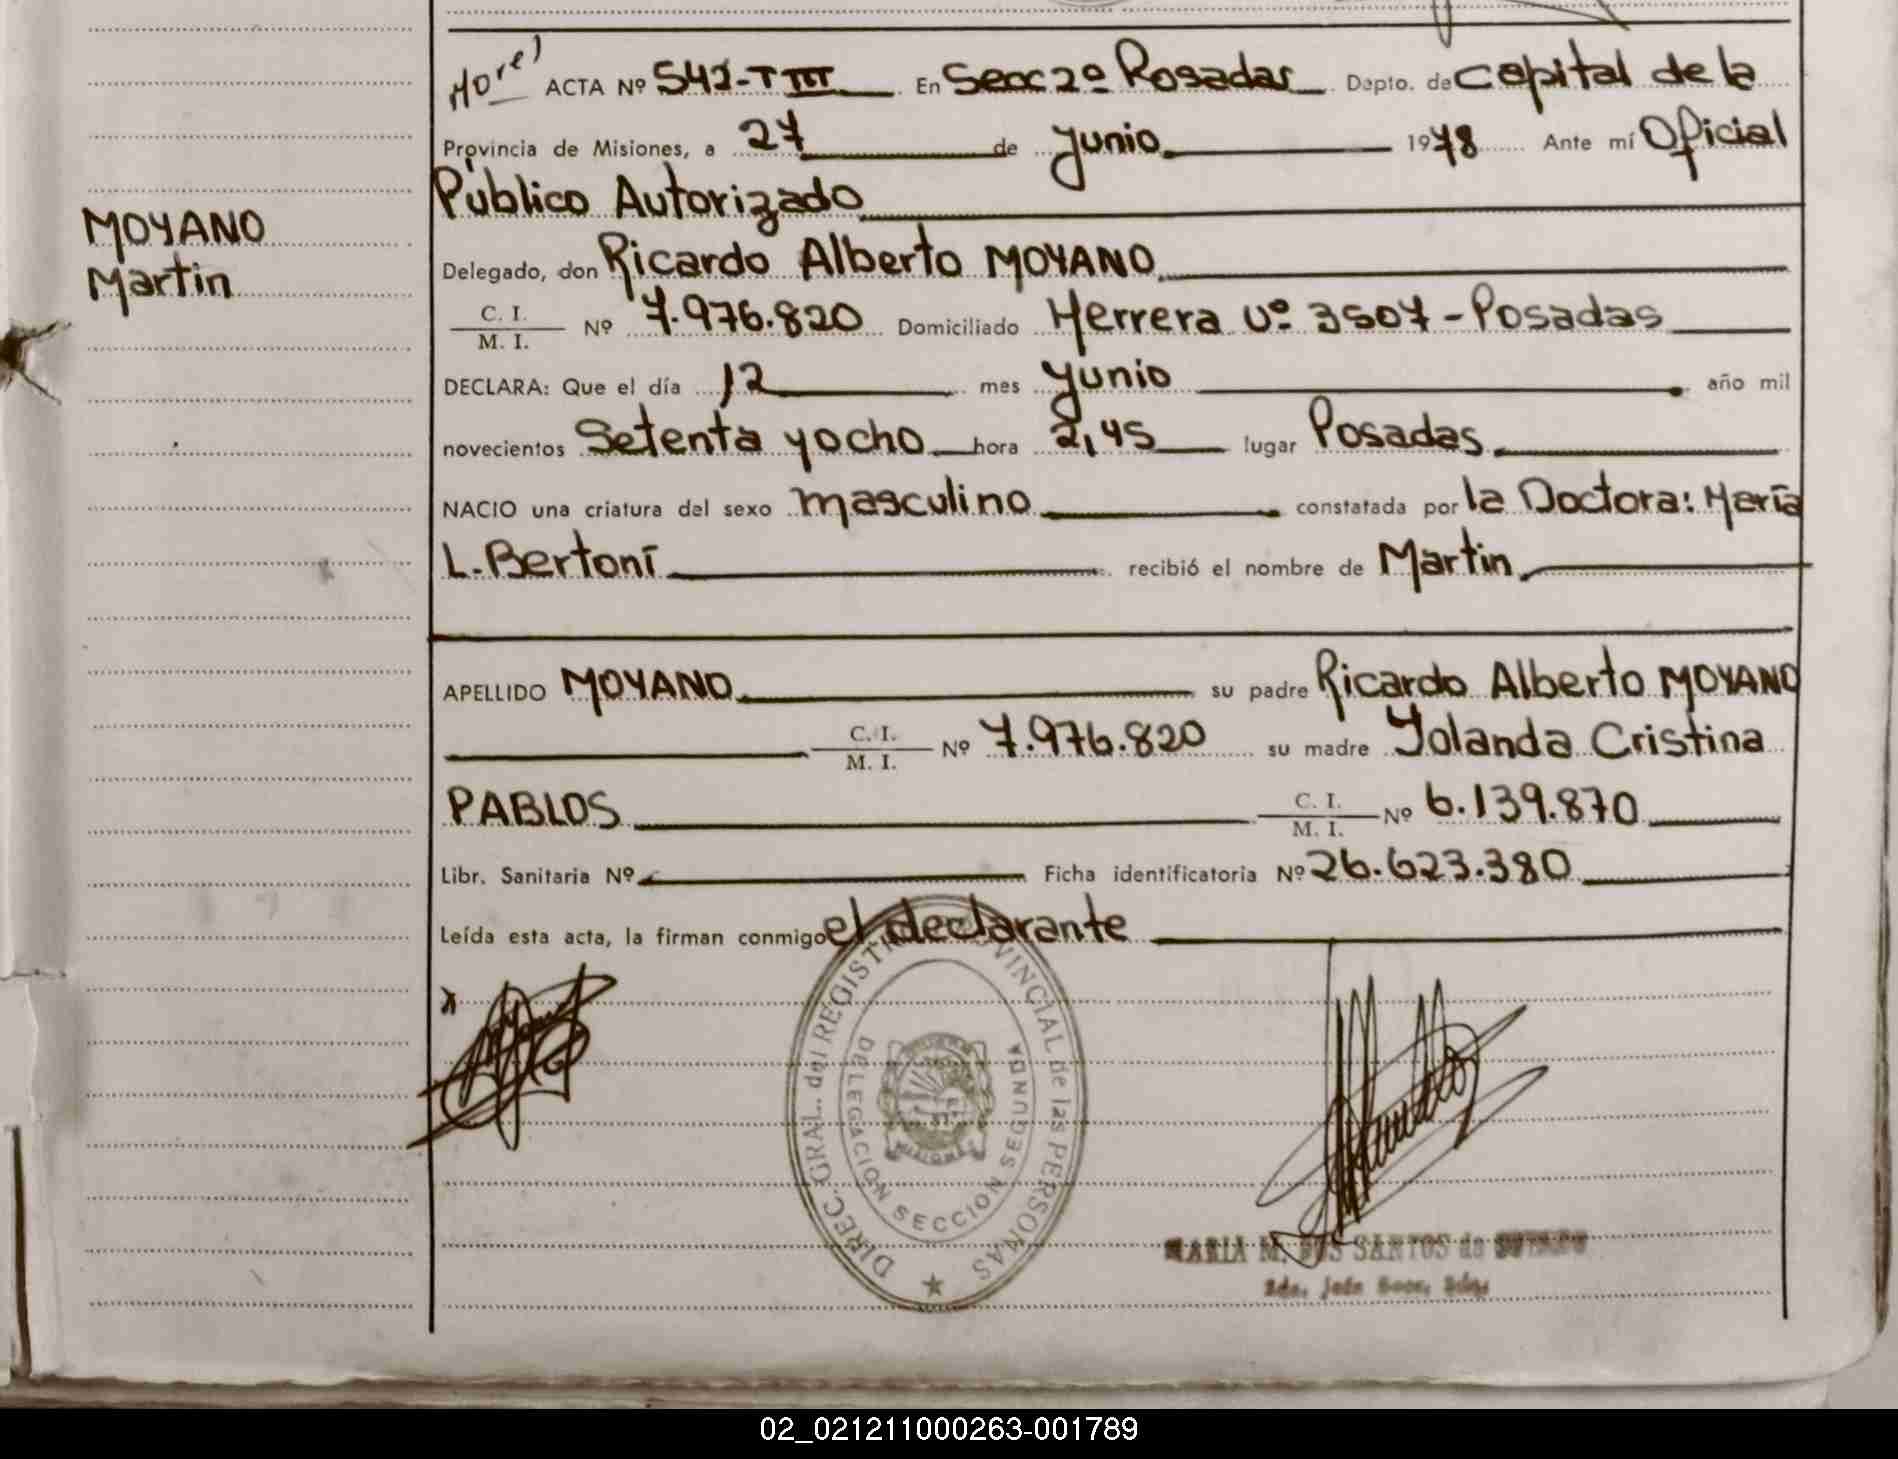 ACTA Nº 542-TIII En Secc 2º Posadas Depto. de Capital de la
Provincia de Misiones, a 27 de Junio 1978 Ante mí Oficial
Público Autorizado
MOYANO
Martin
Delegado, don Ricardo Alberto MOYANO
C. I.
M. I. Nº 7.976.820 Domiciliado Herrera Nº 3507 - Posadas
DECLARA: Que el día 12 mes Junio año mil
novecientos Setenta y ocho hora 2,45 lugar Posadas
NACIO una criatura del sexo masculino constatada por la Doctora: María
L. Bertoni recibió el nombre de Martin
APELLIDO MOYANO su padre Ricardo Alberto MOYANO
C. I.
M. I. Nº 7.976.820 su madre Yolanda Cristina
PABLOS C. I.
M. I. Nº 6.139.870
Libr. Sanitaria Nº Ficha identificatoria Nº 26.623.380
Leída esta acta, la firman conmigo el declarante
x
DIREC. GRAL. del REGISTRO PROVINCIAL de las PERSONAS
DELEGACION SECCION SEGUNDA
MISIONES
MARIA M. DOS SANTOS de
02_021211000263-001789